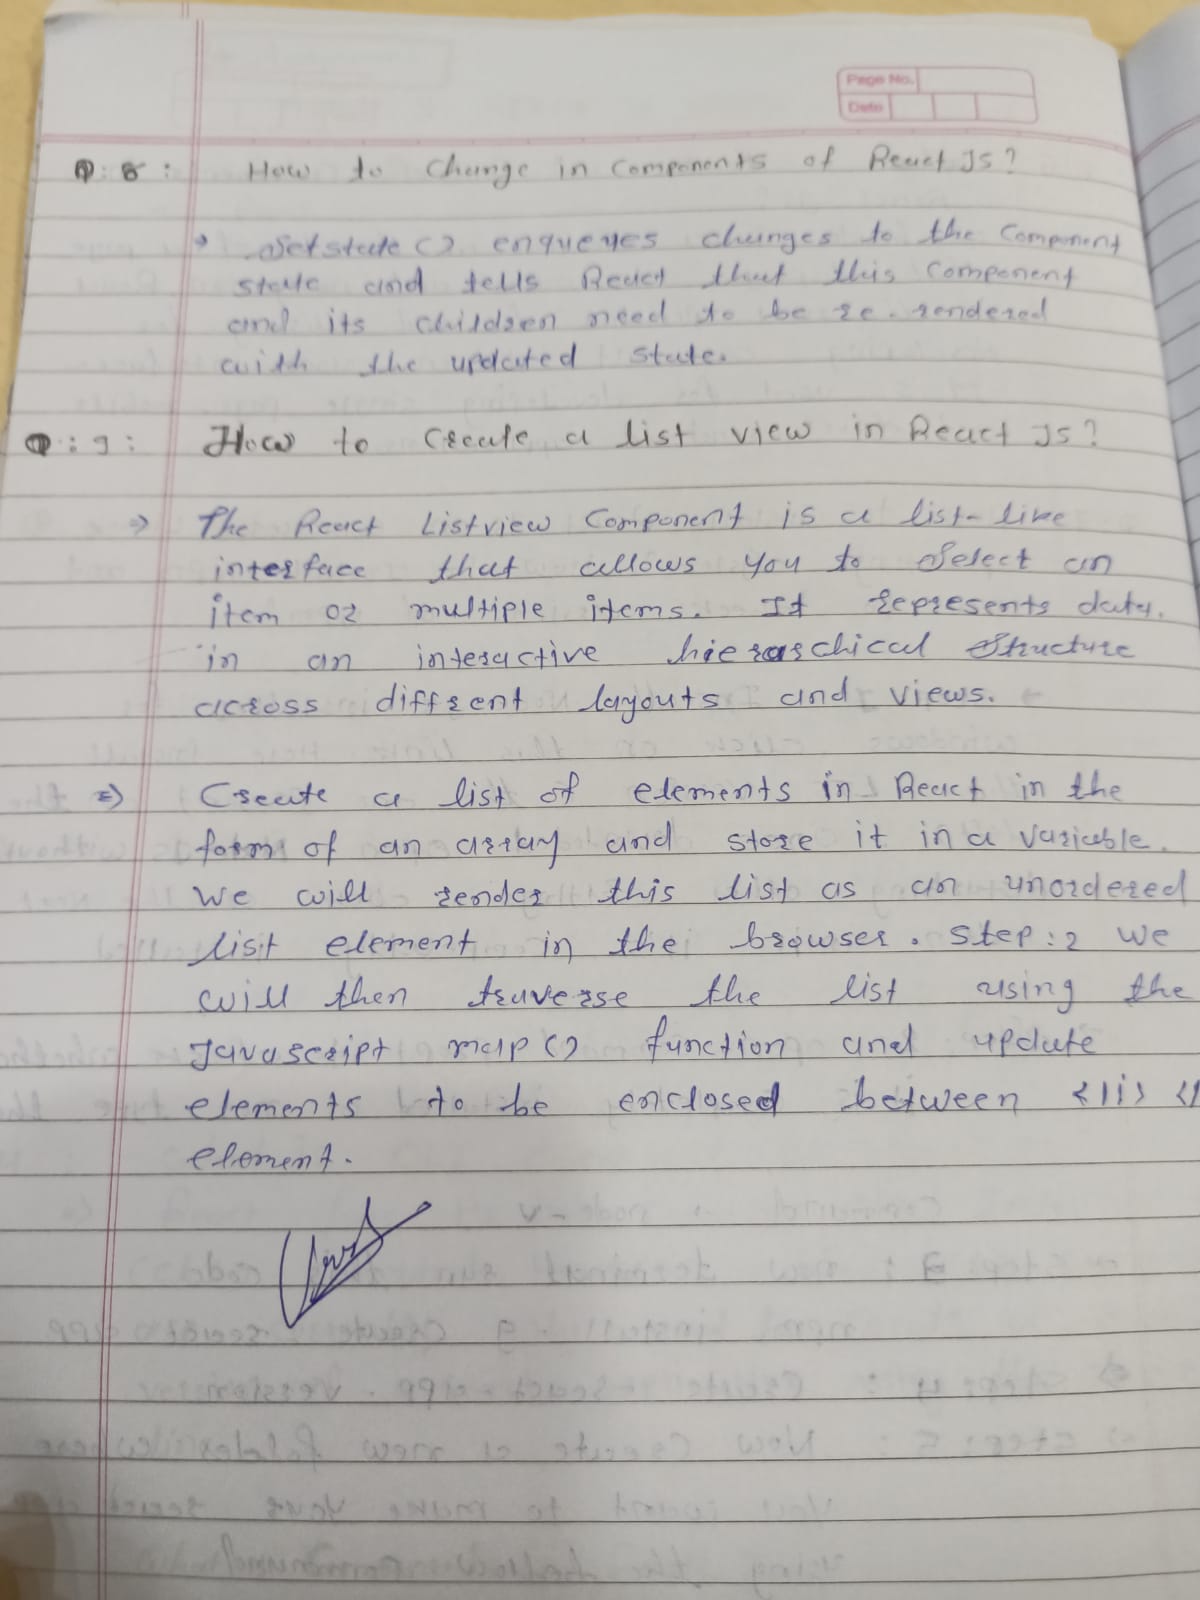 Page No.
Date
Q : 8 : How to Change in Components of React JS?
→ Setstate () enqueues changes to the Component
state and tells React that this Component
and its children need to be re-rendered
with the updated state.
Q : 9 : How to Create a list view in React JS?
⇒ The React Listview Component is a list-like
interface that allows you to Select an
item or multiple items. It represents data.
in an interactive hierarchical Structure
across diffrent layouts and views.
⇒ Create a list of elements in React in the
form of an array and store it in a variable.
We will render this list as an unordered
list element in the browser. Step:2 We
will then traverse the list using the
Javascript map () function and update
elements to be enclosed between <li> </
element.